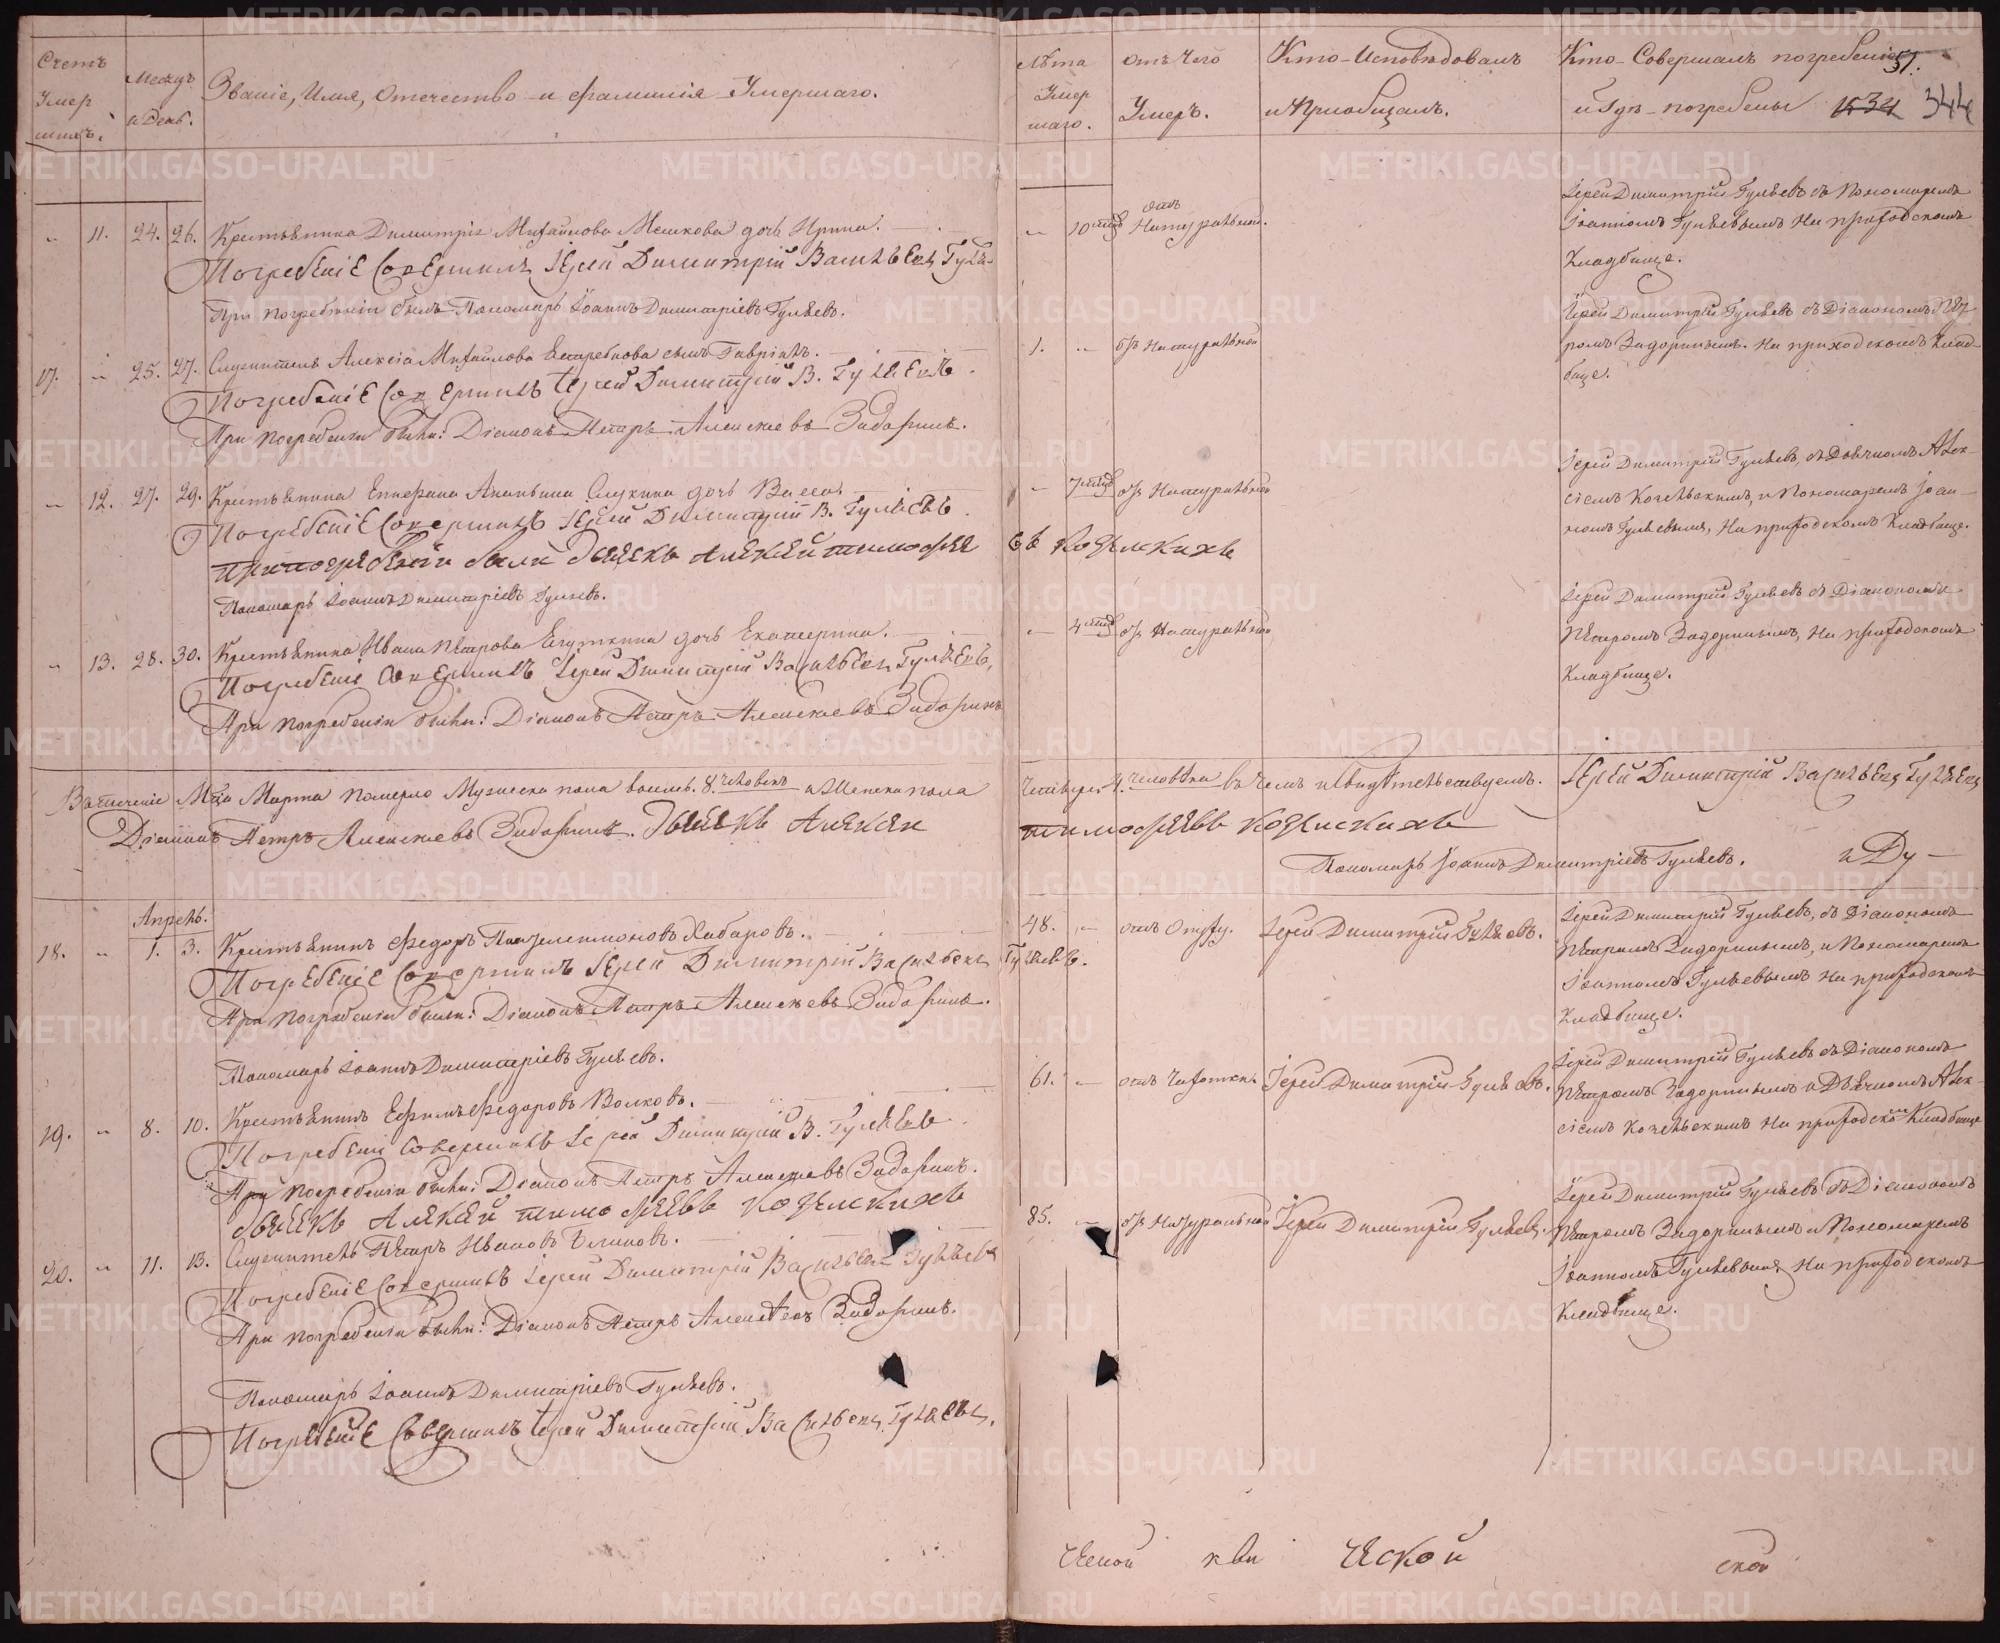 Счетъ
Умер
шихъ.
Месяцъ
и День.
Званіе, Имя, Отечество и фамилія Умершаго.
Лѣта
Умер
шаго.
Отъ Чего
Умеръ.
Кто Исповѣдовалъ
и Пріобщалъ.
Кто Совершалъ погребеніе
и Гдѣ погребены
51.
344
" 11. 24. 26. Крестьянина Димитрія Михайлова Мешкова дочь Ирина.
10 мцв отъ Натуральной.
Іерей Димитрій Гуляевъ съ Пономаремъ
Іоанномъ Гуляевымъ На приходскомъ
Кладбище.
Погребеніе Совершилъ Іерей Димитрій Васильевъ Гуля-
При погребеніи былъ Пономарь Іоаннъ Димитріевъ Гуляевъ.
17. " 25. 27. Служителя Алексія Михайлова Ястребкова сынъ Гавріилъ.
1. " отъ Натуральной
Іерей Димитрій Гуляевъ съ Діакономъ Пет
ромъ Задоринымъ. На приходскомъ Клад-
бище.
Погребеніе Совершилъ Іерей Димитрій В. Гуляевъ.
При погребеніи были: Діаконъ Петръ Алексѣевъ Задоринъ.
" 12. 27. 29. Крестьянина Ананьина дочь Васса.
" 7 мцв отъ Натуральной
Іерей Димитрій Гуляевъ, съ Дьячкомъ Алек-
сіемъ и Пономаремъ Іоан-
номъ Гуляевымъ, На приходскомъ Кладбище.
Погребеніе Совершилъ Іерей Димитрій В. Гуляевъ.
При погребеніи были дьячекъ Алексей тимофее
въ
Пономарь Іоаннъ Димитріевъ Гуляевъ.
" 13. 28. 30. Крестьянина Ивана Петрова дочь Екатерина.
" 4 мцв отъ Натуральной
Іерей Димитрій Гуляевъ съ Діакономъ
Петромъ Задоринымъ, На приходскомъ
Кладбище.
Погребеніе Совершилъ Іерей Димитрій Васильевъ Гуляевъ,
При погребеніи были: Діаконъ Петръ Алексѣевъ Задоринъ
Въ теченіе Мца Марта померло Мужеска пола восемь. 8. человекъ и Женска пола
Четыре. 4. человѣка въ чемъ и свидѣтельствуемъ. Іерей Димитрій Васильевъ Гуляевъ
Діаконъ Петръ Алексѣевъ Задоринъ. Дьячекъ Алексей
тимофеевъ
Пономарь Іоаннъ Димитріевъ Гуляевъ.
Апрель.
18. " 1. 3. Крестьянинъ Федоръ Пантелеимоновъ Хабаровъ.
48. " отъ
Іерей Димитрій Гуляевъ.
Іерей Димитрій Гуляевъ, съ Діакономъ
Петромъ Задоринымъ, и Пономаремъ
Іоанномъ Гуляевымъ На приходскомъ
Кладбище.
Погребеніе Совершилъ Іерей Димитрій Васильевъ
Гуляевъ.
При погребеніи были: Діаконъ Петръ Алексѣевъ Задоринъ.
Пономарь Іоаннъ Димитріевъ Гуляевъ.
19. " 8. 10. Крестьянинъ Ефимъ Федоровъ Волковъ.
61. " отъ Чахотки.
Іерей Димитрій Гуляевъ.
Іерей Димитрій Гуляевъ съ Діакономъ
Петромъ Задоринымъ и Дьячкомъ Алек-
сіемъ На приходскомъ Кладбище
Погребеніе Совершилъ Іерей Димитрій В. Гуляевъ
При погребеніи были: Діаконъ Петръ Алексѣевъ Задоринъ.
дьячекъ Алексей тимофеевъ
20. " 11. 13. Служитель Петръ Ивановъ
85. " отъ Натуральной
Іерей Димитрій Гуляевъ.
Іерей Димитрій Гуляевъ съ Діакономъ
Петромъ Задоринымъ и Пономаремъ
Іоанномъ Гуляевымъ На приходскомъ
Кладбище.
Погребеніе Совершилъ Іерей Димитрій Васильевъ Гуляевъ
При погребеніи были: Діаконъ Петръ Алексѣевъ Задоринъ.
Пономарь Іоаннъ Димитріевъ Гуляевъ.
Погребеніе Совершилъ Іерей Димитрій Васильевъ Гуляевъ.
ческой
ской
METRIKI.GASO-URAL.RU